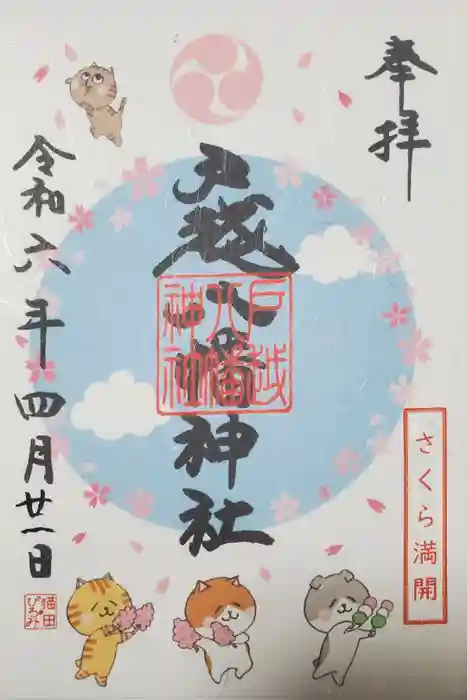 奉拝
戸越八幡神社
戸越
八幡
神社
さくら満開
令和六年四月廿一日
猫田
ぴろみ